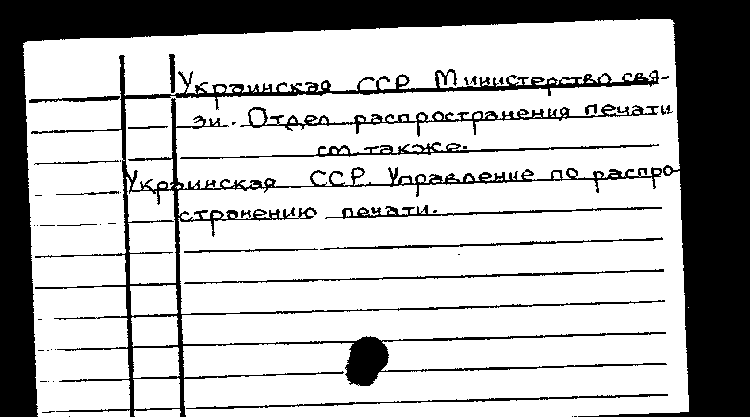 Украинская ССР Министерство свя-
зи. Отдел распространения печати
см также.
Украинская ССР. Управление по распро-
странению печати.